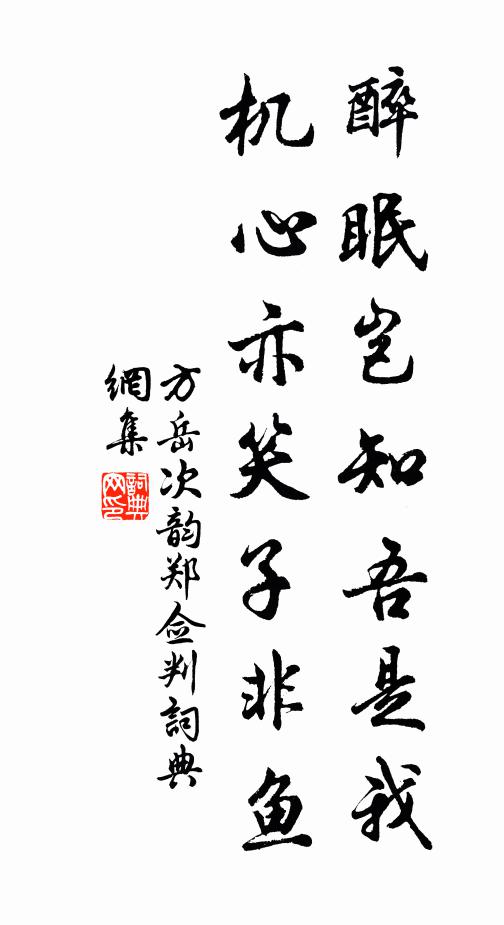 醉眠岂知吾是我
机心亦笑子非鱼
方岳次韵郑佥判詞典
網集
詞典網印